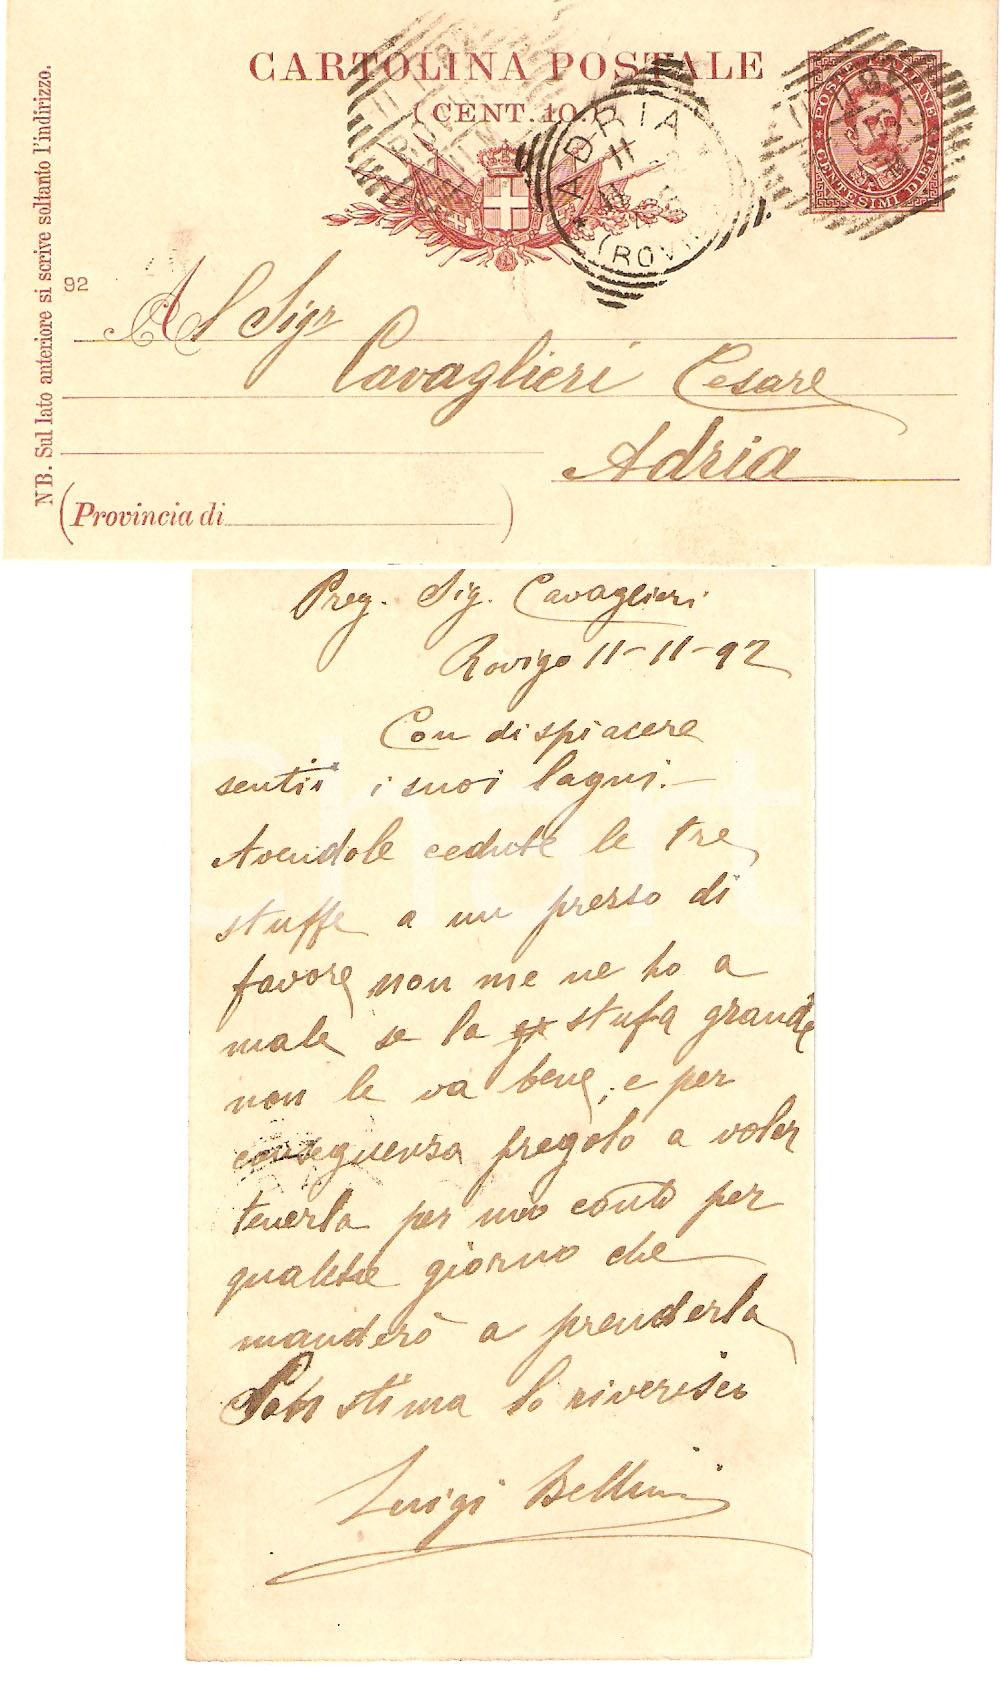 CARTOLINA POSTALE
(CENT. 10.)
POSTE ITALIANE
CENTESIMI DIECI
ADRIA
11
(ROVI
NB. Sul lato anteriore si scrive soltanto l'indirizzo.
92
Al Sigr
Cavaglieri Cesare
Adria
(Provincia di )
Preg. Sig. Cavaglieri
Rovigo 11-11-92
Con dispiacere
sentii i suoi lagni.-
Avendole cedute le tre
stuffe a un presso di
favore non me ne ho a
male se la stufa grande
non le va bene; e per
conseguensa pregolo a voler
tenerla per mio conto per
qualche giorno che
manderò a prenderla
Con stima lo riverisco
Luigi Bellini